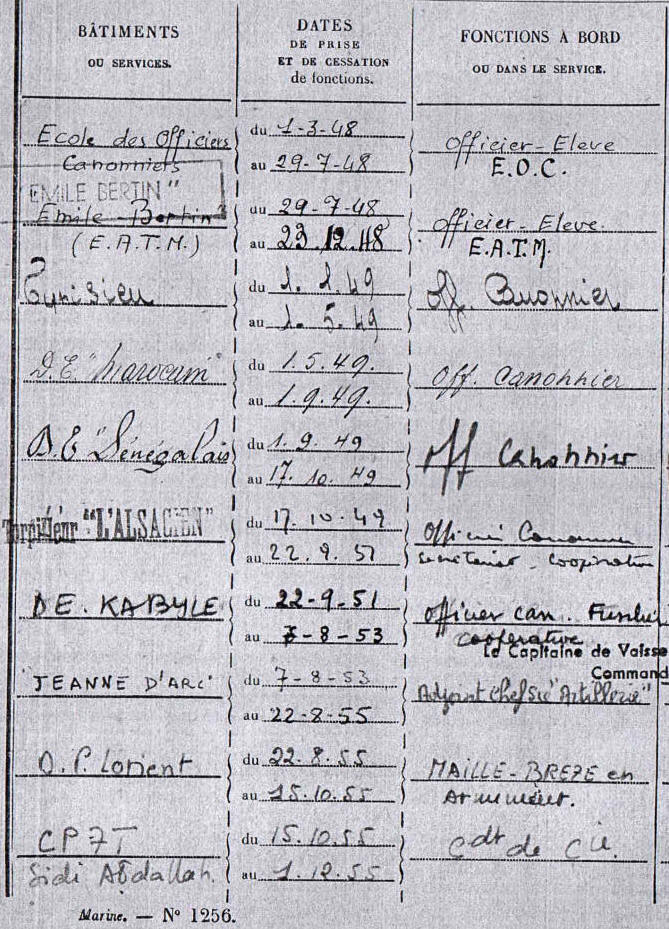 BÂTIMENTS
OU SERVICES.
DATES
DE PRISE
ET DE CESSATION
de fonctions.
FONCTIONS À BORD
OU DANS LE SERVICE.
Ecole des Officiers
Canonniers
du 1-3-48
au 29-7-48
Officier-Eleve
E.O.C.
EMILE BERTIN"
Emile-Bertin
(E.A.T.M.)
du 29-7-48
au 23.12.48
Officier-Eleve
E.A.T.M.
Tunisien
du 1. 1. 49
au 1. 5. 49
Off. Canonnier
D.E "Marocain"
du 1.5.49.
au 1.9.49.
Off. Canonnier
D.E "Sénégalais
du 1. 9. 49
au 17. 10. 49
Off Canonnier
Torpilleur "L'ALSACIEN"
du 17. 10. 49
au 22. 9. 51
Officier Canonnier
Secrétariat - Coopérative
DE. KABYLE
du 22-9-51
au 7-8-53
Officier can. Fusilier
coopérative
Le Capitaine de Vaisse
Command
"JEANNE D'ARC"
du 7-8-53
au 22-8-55
Adjoint chef Sie "Artillerie"
D.P. Lorient
du 22.8.55
au 15.10.55
MAILLE-BREZE en
Armement.
CP7T
Sidi Abdallah.
du 15.10.55
au 1.12.55
Cdt de Cie.
Marine. — N° 1256.